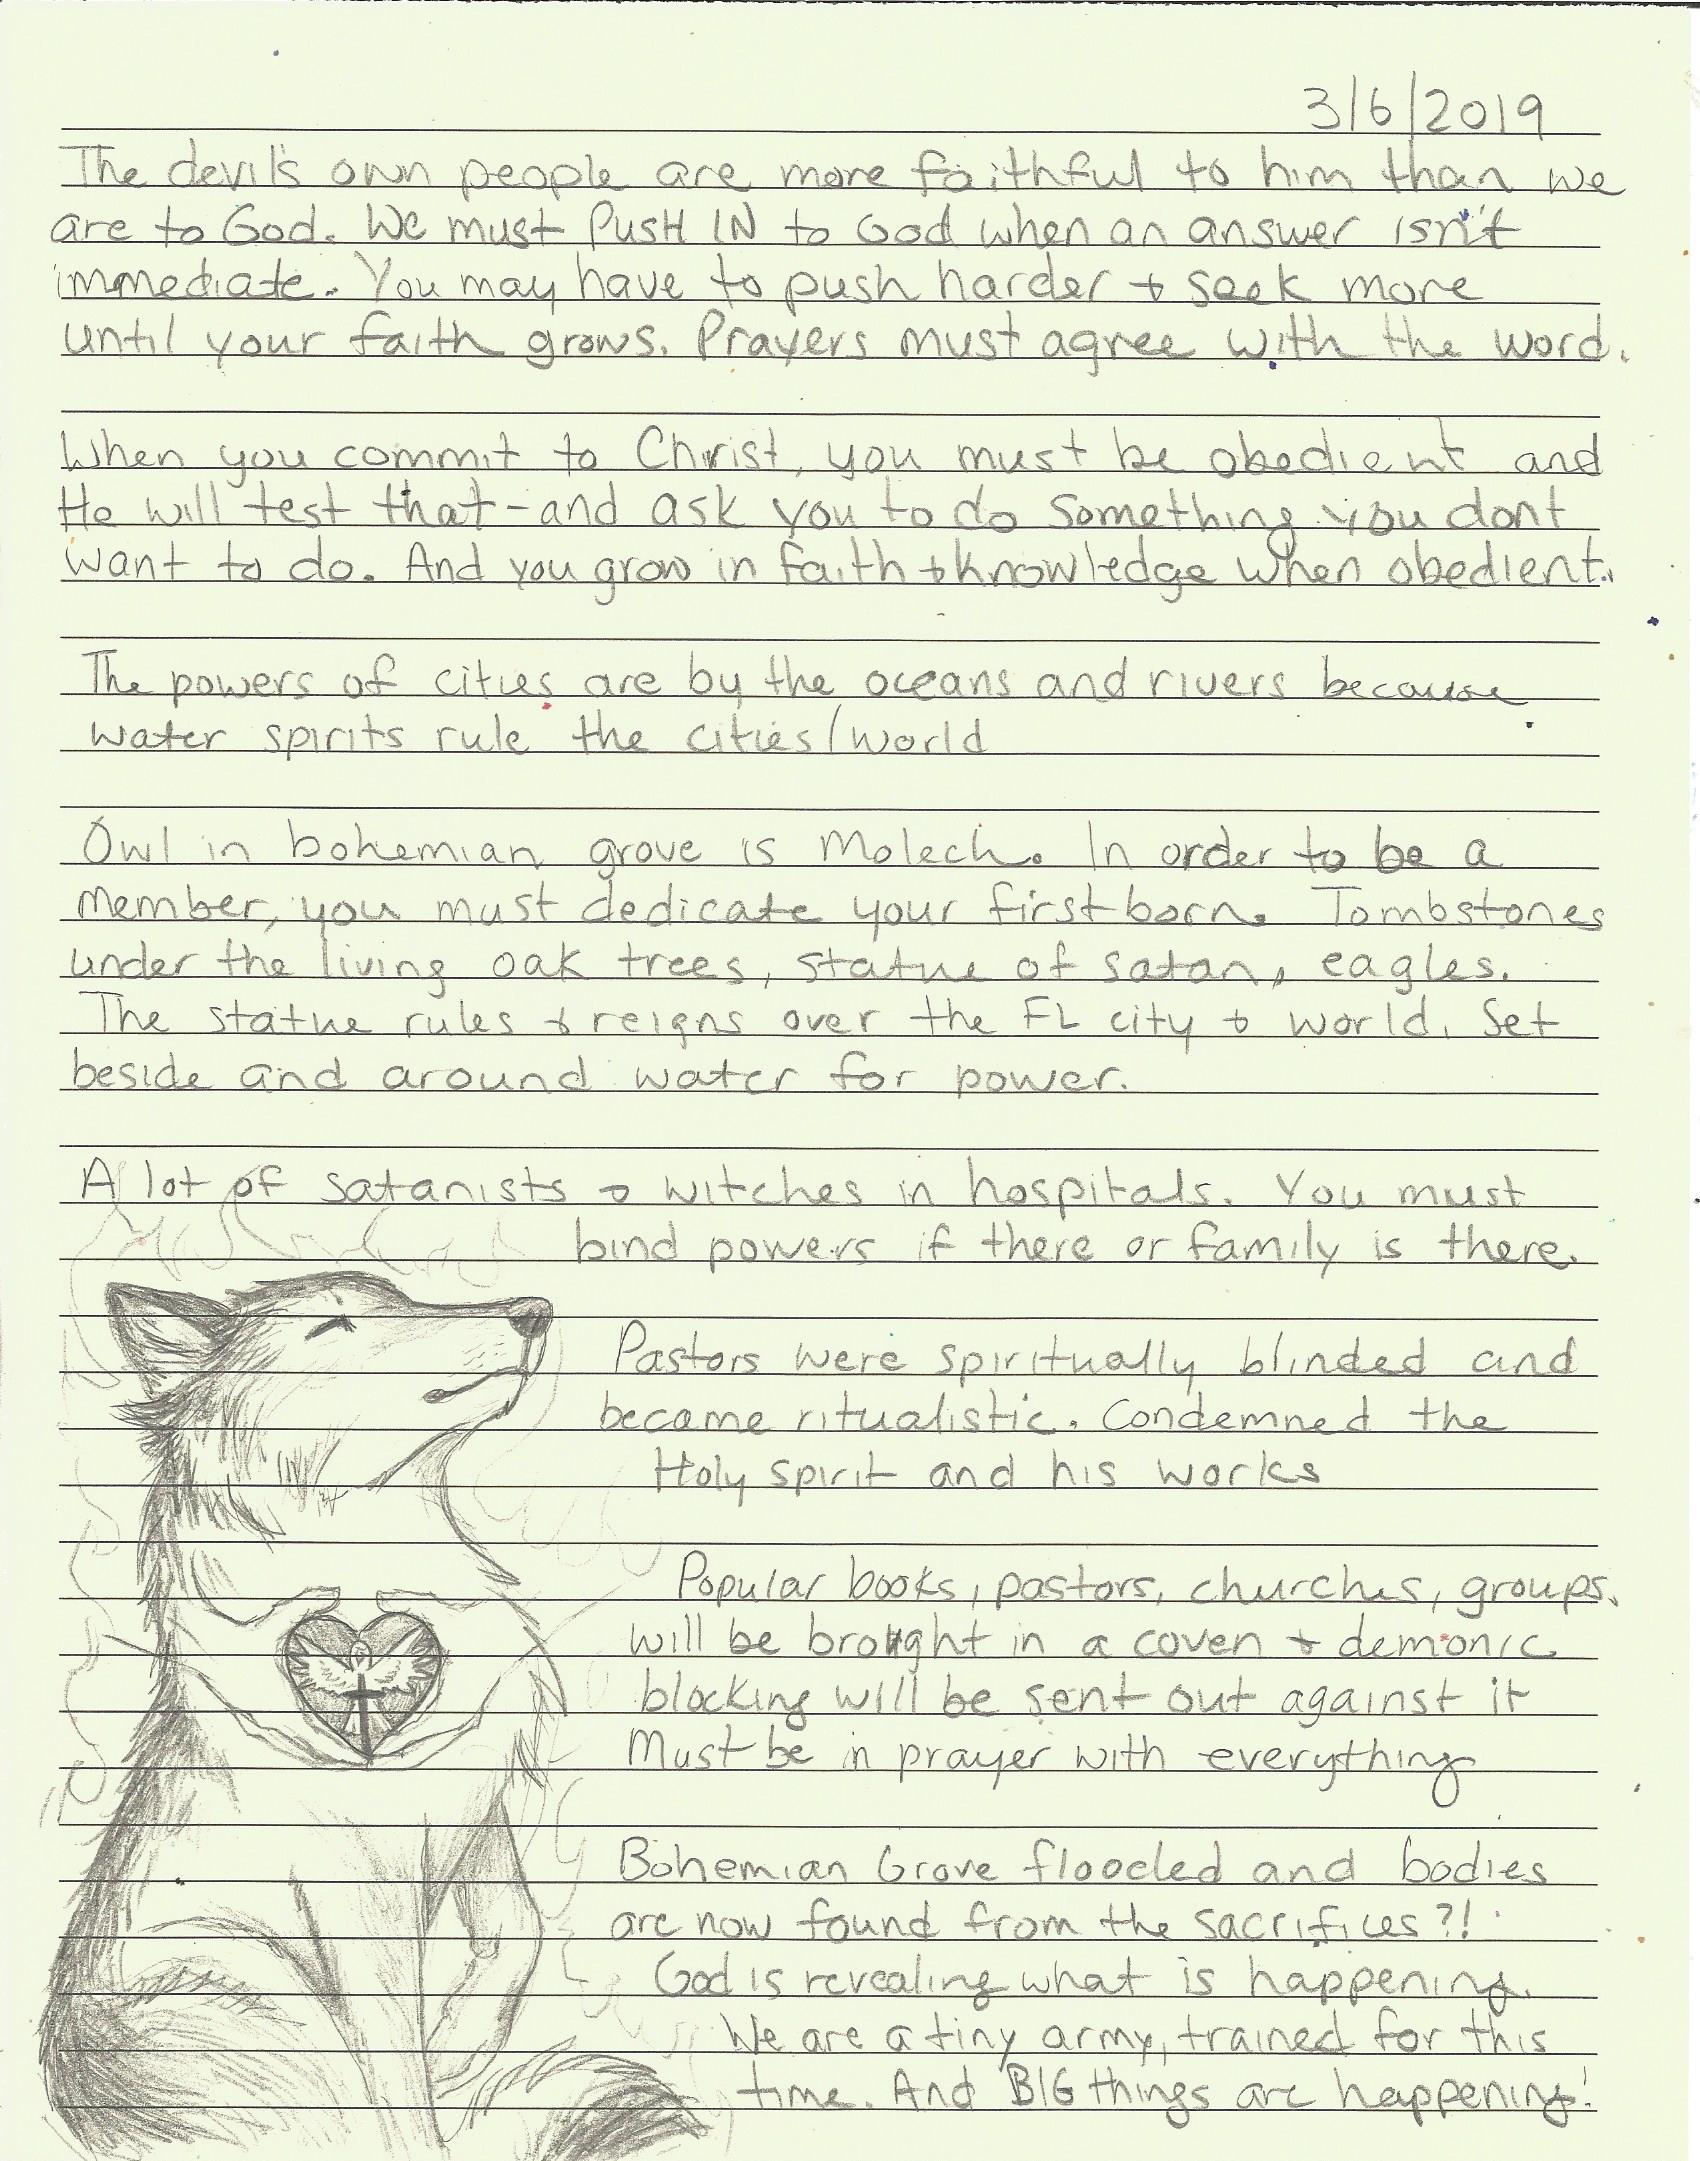 3/6/2019
The devil's own people are more faithful to him than we
are to God. We must PUSH IN to God when an answer isn't
immediate. You may have to push harder & seek more
until your faith grows. Prayers must agree with the word.
When you commit to Christ, you must be obedient and
He will test that - and ask you to do something you dont
want to do. And you grow in faith & knowledge when obedient.
The powers of cities are by the oceans and rivers because
water spirits rule the cities/world
Owl in bohemian grove is Molech. In order to be a
member, you must dedicate your firstborn. Tombstones
under the living oak trees, statue of satan, eagles.
The statue rules & reigns over the FL city & world. Set
beside and around water for power.
A lot of satanists & witches in hospitals. You must
bind powers if there or family is there.
Pastors were spiritually blinded and
became ritualistic. Condemned the
Holy spirit and his works
Popular books, pastors, churches, groups.
will be brought in a coven & demonic
blocking will be sent out against it
Must be in prayer with everything
Bohemian Grove flooded and bodies
are now found from the sacrifices?!
God is revealing what is happening.
We are a tiny army, trained for this
time. And BIG things are happening!